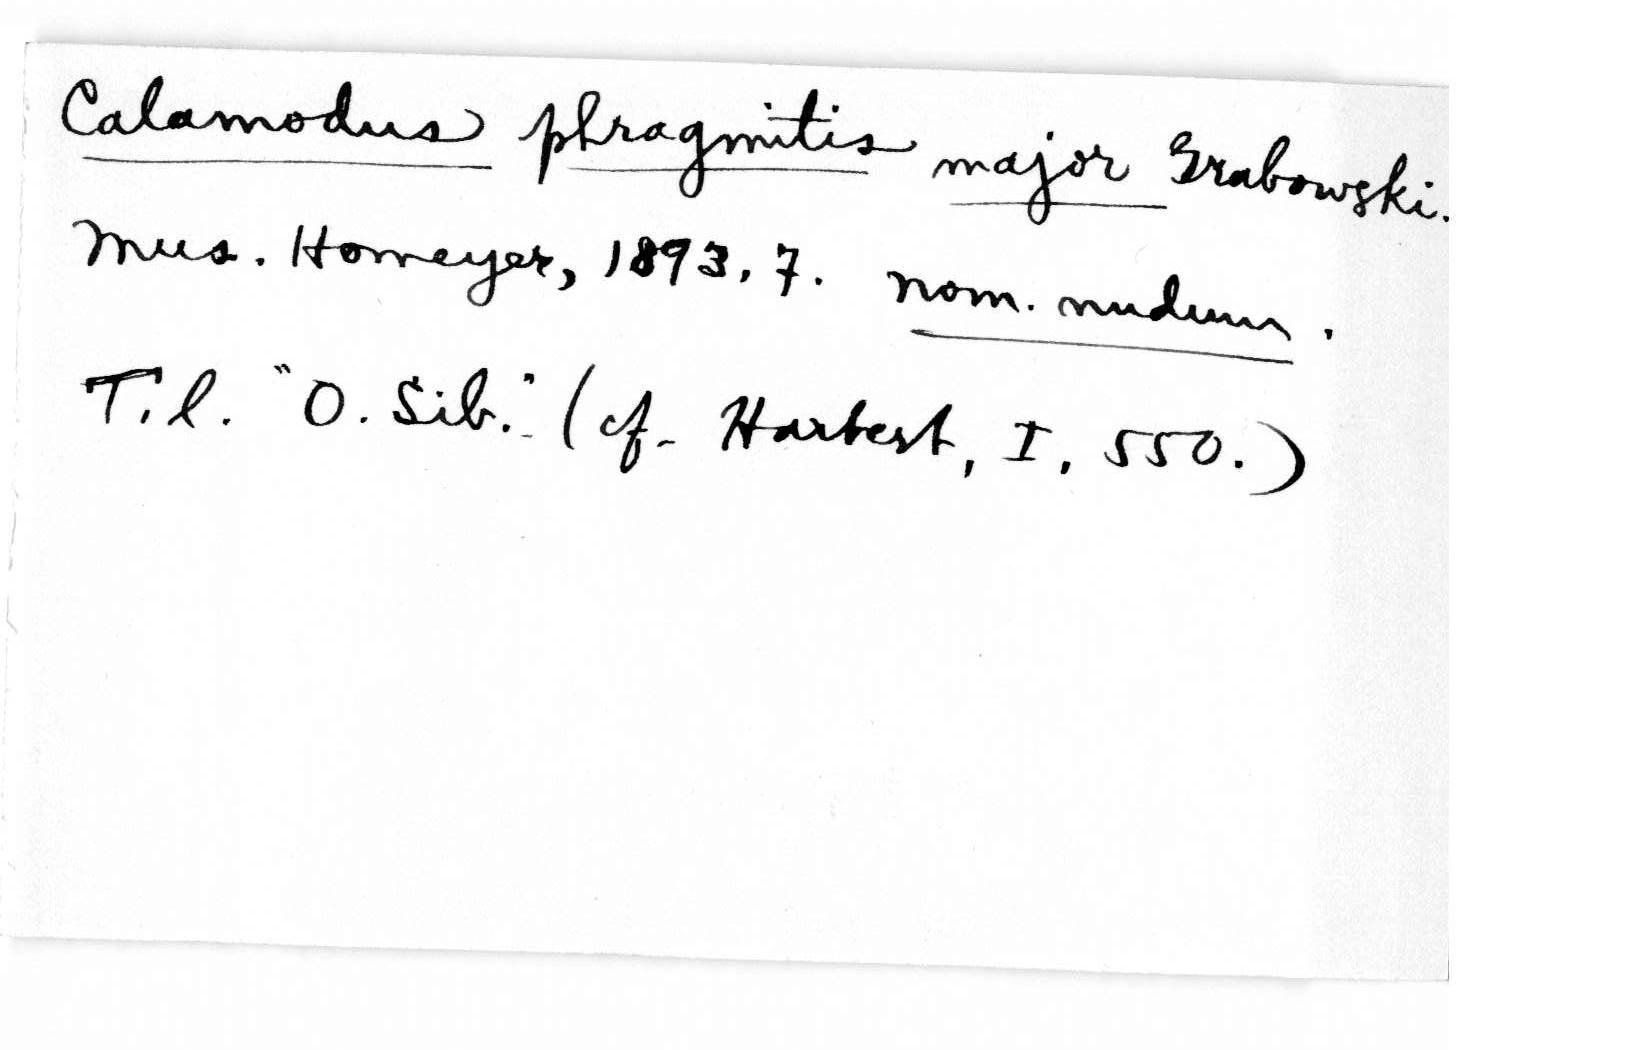 Calamodus phragmitis major Grabowski.
Mus. Homeyer, 1893, 7. nom. nudum.
T.l. "O. Sib." (cf. Hartert, I, 550.)